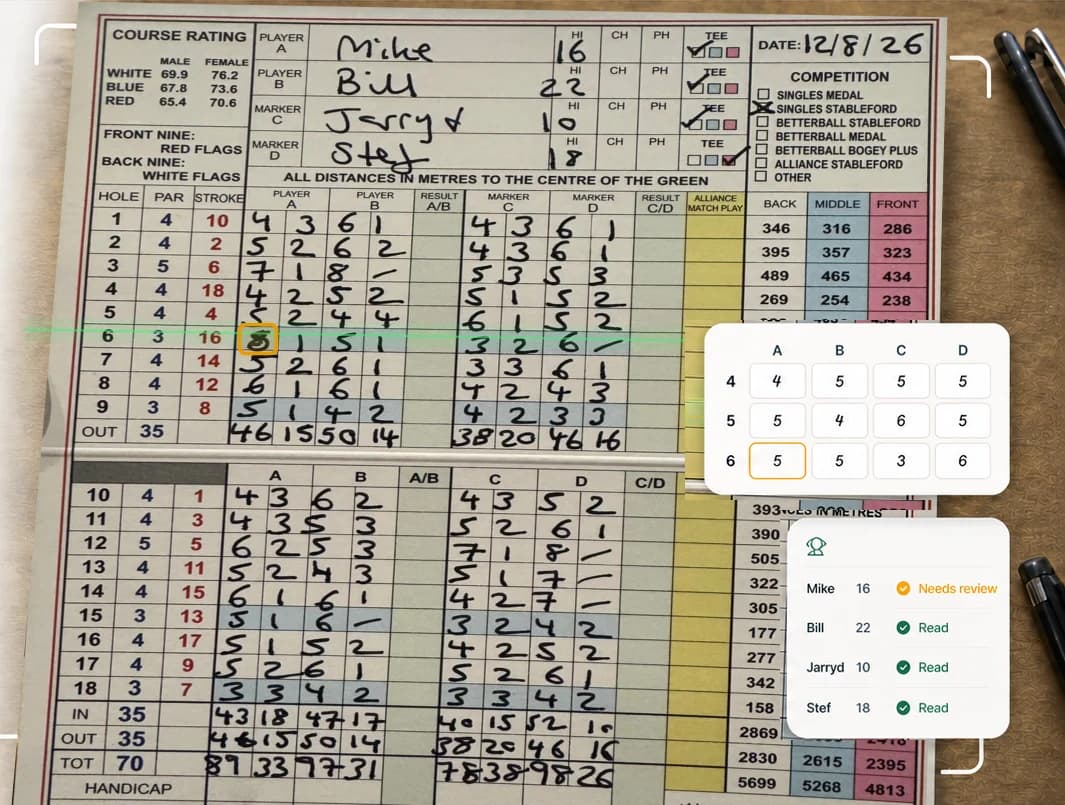 COURSE RATING
MALE FEMALE
WHITE 69.9 76.2
BLUE 67.8 73.6
RED 65.4 70.6
FRONT NINE:
RED FLAGS
BACK NINE:
WHITE FLAGS
PLAYER A Mike HI 16 CH PH TEE
PLAYER B Bill HI 22 CH PH TEE
MARKER C Jarryd HI 10 CH PH TEE
MARKER D Stef HI 18 CH PH TEE
DATE: 12/8/26
COMPETITION
SINGLES MEDAL
SINGLES STABLEFORD
BETTERBALL STABLEFORD
BETTERBALL MEDAL
BETTERBALL BOGEY PLUS
ALLIANCE STABLEFORD
OTHER
ALL DISTANCES IN METRES TO THE CENTRE OF THE GREEN
HOLE PAR STROKE PLAYER A PLAYER B RESULT A/B MARKER C MARKER D RESULT C/D ALLIANCE MATCH PLAY BACK MIDDLE FRONT
1 4 10 4 3 6 1 4 3 6 1 346 316 286
2 4 2 5 2 6 2 4 3 6 1 395 357 323
3 5 6 7 1 8 – 5 3 5 3 489 465 434
4 4 18 4 2 5 2 5 1 5 2 269 254 238
5 4 4 5 2 4 4 6 1 5 2
6 3 16 1 5 1 3 2 6 –
7 4 14 5 2 6 1 3 3 6 1
8 4 12 6 1 6 1 4 2 4 3
9 3 8 5 1 4 2 4 2 3 3
OUT 35 46 15 50 14 38 20 46 16
A B A/B C D C/D
10 4 1 4 3 6 2 4 3 5 2 393
11 4 3 4 3 5 3 5 2 6 1 390
12 5 5 6 2 5 3 7 1 8 – 505
13 4 11 5 2 4 3 5 1 7 – 322
14 4 15 6 1 6 1 4 2 7 – 305
15 3 13 5 1 6 – 3 2 4 2 177
16 4 17 5 1 5 2 4 2 5 2 277
17 4 9 5 2 6 1 5 2 6 1 342
18 3 7 3 3 4 2 3 3 4 2 158
IN 35 43 18 47 17 40 15 52 10 2869
OUT 35 46 15 50 14 38 20 46 16 2830 2615 2395
TOT 70 89 33 97 31 78 38 98 26 5699 5268 4813
HANDICAP
A B C D
4 4 5 5 5
5 5 4 6 5
6 5 5 3 6
Mike 16 Needs review
Bill 22 Read
Jarryd 10 Read
Stef 18 Read